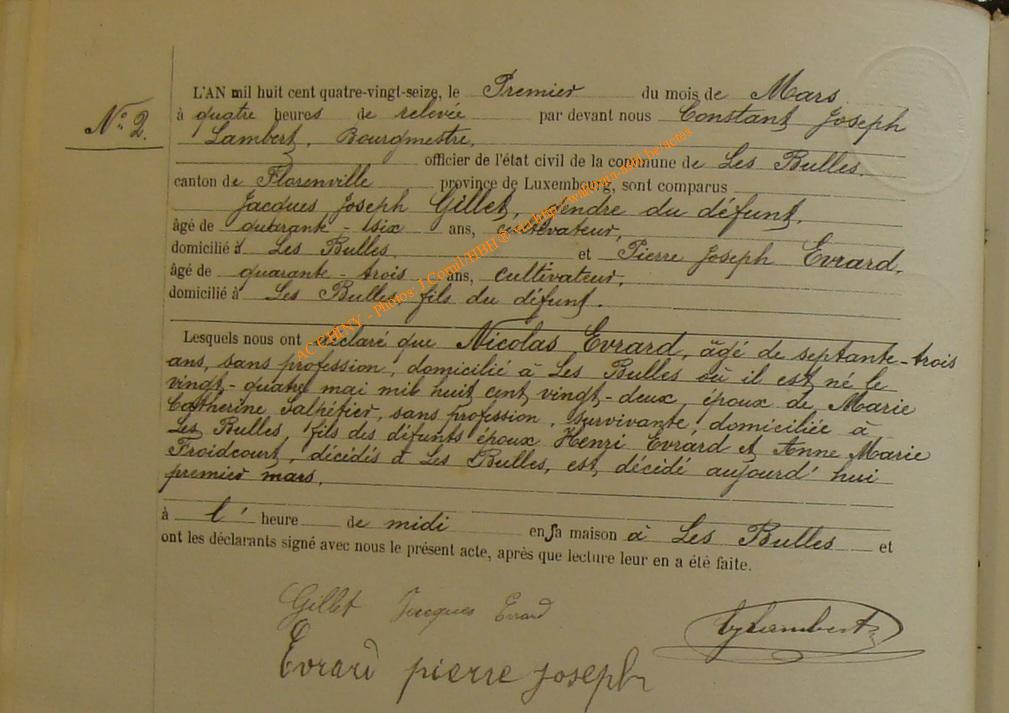 N° 2.
L'AN mil huit cent quatre-vingt-seize, le Premier du mois de Mars
à quatre heures de relevée par devant nous Constant Joseph
Lambert, Bourgmestre,
officier de l'état civil de la commune de Les Bulles.
canton de Florenville province de Luxembourg, sont comparus
Jacques Joseph Gillet, gendre du défunt,
âgé de quarante-six ans, cultivateur,
domicilié à Les Bulles. et Pierre Joseph Evrard,
âgé de quarante-trois ans, cultivateur,
domicilié à Les Bulles fils du défunt.
Lesquels nous ont déclaré que Nicolas Evrard, âgé de septante-trois
ans, sans profession, domicilié à Les Bulles où il est né le
vingt-quatre mai mil huit cent vingt-deux, époux de Marie
Catherine Salpétier, sans profession, survivante, domiciliée à
Les Bulles, fils des défunts époux Henri Evrard et Anne Marie
Froidcourt, décédés à Les Bulles, est décédé aujourd'hui
premier mars,
à l' heure de midi en sa maison à Les Bulles et
ont les déclarants signé avec nous le présent acte, après que lecture leur en a été faite.
Gillet Jacques Evrard
Lambert
Evrard pierre joseph